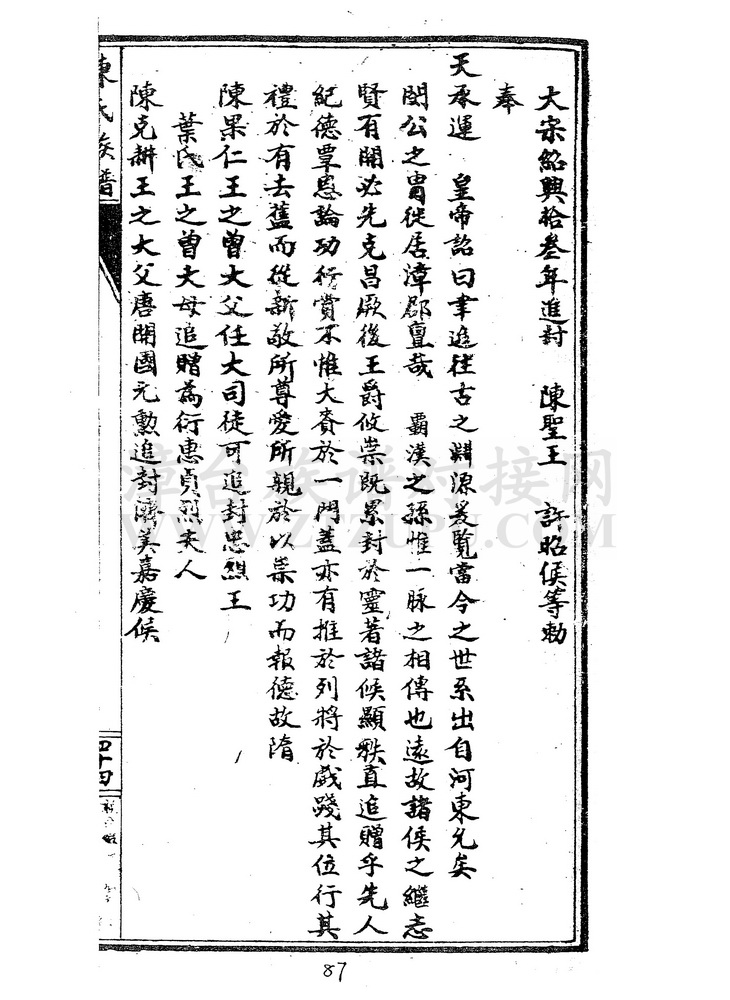 大宗紹興拾叁年進封 陳聖王 許昭侯等勅
奉
天承運 皇帝詔曰聿追往古之淵源爰覽當今之世系出自河東允矣
閔公之胄徙居漳郡亶哉 霸漢之孫惟一脉之相傳也遠故諸侯之繼志
賢有開必先克昌厥後王爵攸崇既累封於靈著諸候顯秩直追贈乎先人
紀德覃恩論功行賞不惟大賚於一門蓋亦有推於列將於戲踐其位行其
禮於有去舊而從新敬所尊愛所親於以崇功而報德故隋
陳果仁王之曾大父任大司徒可追封忠烈王
葉氏王之曾大母追贈為衍惠貞烈夫人
陳克耕王之大父唐開國元勳追封濟美嘉慶候
陳氏族譜
四十四
87
漳台族谱对接网
WWW.ZTZUPU.COM